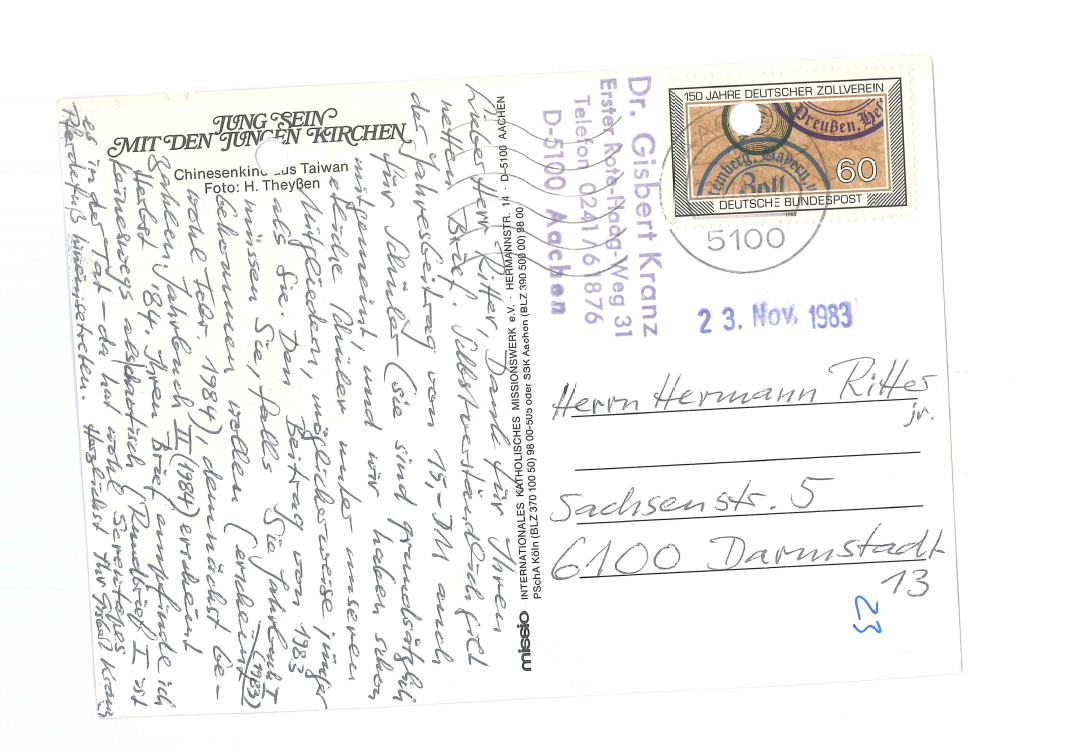 JUNG SEIN
MIT DEN JUNGEN KIRCHEN
Chinesenkind aus Taiwan
Foto: H. Theyßen
Lieber Herr Ritter, Dank für Ihren
netten Brief. Selbstverständlich gilt
der Jahresbeitrag von 15,- DM auch
für Schüler (sie sind grundsätzlich
mitgemeint, und wir haben schon
etliche Schüler unter unseren
Mitgliedern, möglicherweise jünger
als Sie. Den Beitrag von 1983
müssen Sie, falls Sie Jahrbuch I (1983)
bekommen wollen (erscheint
wohl Febr. 1984), demnächst be-
zahlen. Jahrbuch II (1984) erscheint
Herbst '84. Ihren Brief empfinde ich
keineswegs als sarkastisch (Rundbrief I ist
es in der Tat – da hat wohl
Pferdefuß
Herzlichst Ihr Gisbert Kranz
missio INTERNATIONALES KATHOLISCHES MISSIONSWERK e.V. · HERMANNSTR. 14 · D-5100 AACHEN
PSchA Köln (BLZ 370 100 50) 98 00-505 oder SSK Aachen (BLZ 390 500 00) 98 00
Dr. Gisbert Kranz
Erster Rote-Haag-Weg 31
Telefon 0241/61876
D-5100 Aachen
150 JAHRE DEUTSCHER ZOLLVEREIN
Preußen, Hes
emberg, Bayern, u
Zoll
60
DEUTSCHE BUNDESPOST
1983
5100
23. Nov. 1983
Herrn Hermann Ritter
jr.
Sachsenstr. 5
6100 Darmstadt
13
23